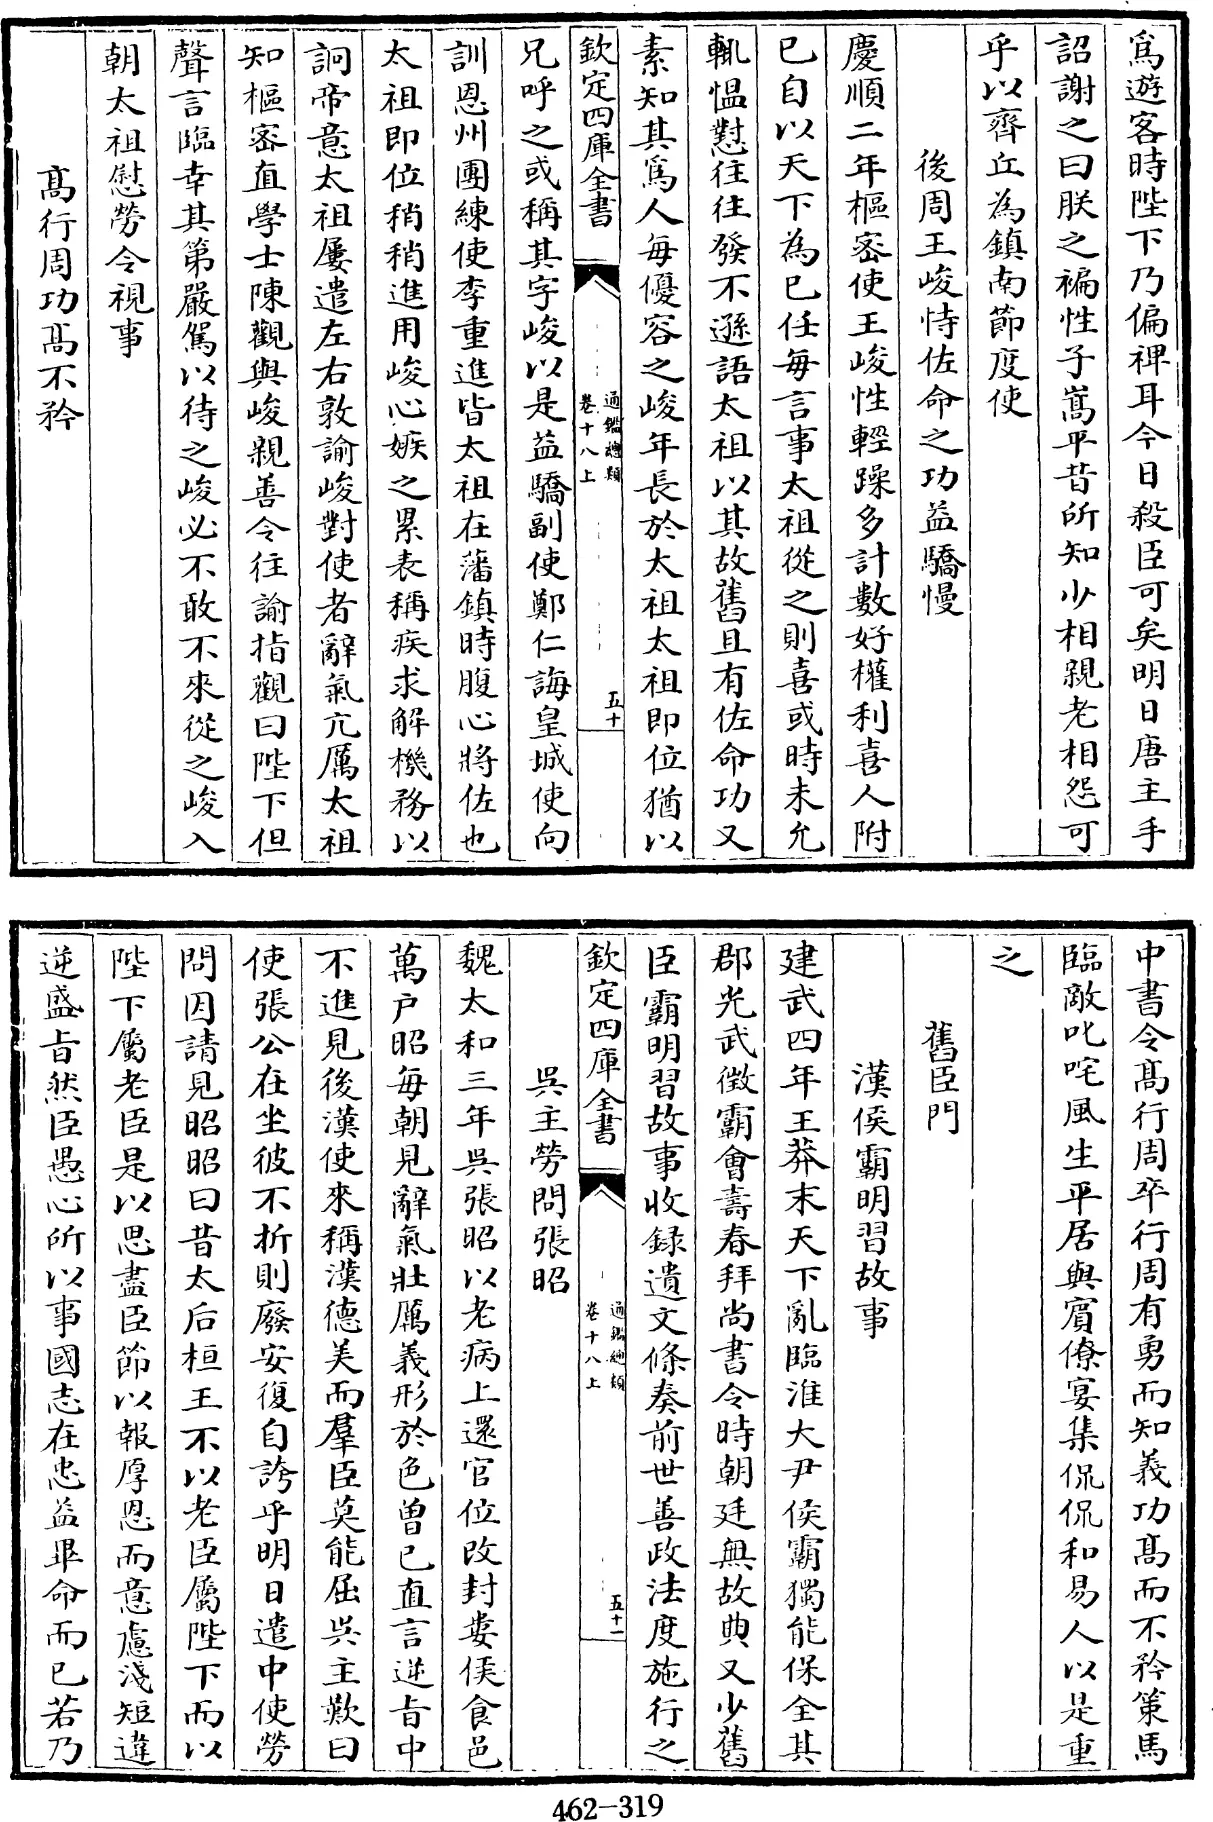 為遊客時陛下乃偏裨耳今日殺臣可矣明日唐主手
詔謝之曰朕之褊性子嵩平昔所知少相親老相怨可
乎以齊丘為鎮南節度使
後周王峻恃佐命之功益驕慢
慶順二年樞密使王峻性輕躁多計數好權利喜人附
已自以天下為已任每言事太祖從之則喜或時未允
輒愠懟往往發不遜語太祖以其故舊且有佐命功又
素知其為人每優容之峻年長於太祖太祖即位猶以
欽定四庫全書
通鑑總類
卷十八上
五十
兄呼之或稱其字峻以是益驕副使鄭仁誨皇城使向
訓恩州團練使李重進皆太祖在藩鎮時腹心將佐也
太祖即位稍稍進用峻心嫉之累表稱疾求解機務以
詗帝意太祖屢遣左右敦諭峻對使者辭氣亢厲太祖
知樞密直學士陳觀與峻親善令往諭指觀曰陛下但
聲言臨幸其第嚴駕以待之峻必不敢不來從之峻入
朝太祖慰勞令視事
髙行周功髙不矜
中書令髙行周卒行周有勇而知義功髙而不矜策馬
臨敵叱咤風生平居與賓僚宴集侃侃和易人以是重
之
舊臣門
漢侯霸明習故事
建武四年王莽末天下亂臨淮大尹侯霸獨能保全其
郡光武徵霸會壽春拜尚書令時朝廷無故典又少舊
臣霸明習故事收録遺文條奏前世善政法度施行之
欽定四庫全書
通鑑總類
卷十八上
五十一
吳主勞問張昭
魏太和三年吳張昭以老病上還官位改封婁侯食邑
萬户昭每朝見辭氣壯厲義形於色曾已直言逆旨中
不進見後漢使來稱漢德美而羣臣莫能屈吳主歎曰
使張公在坐彼不折則廢安復自誇乎明日遣中使勞
問因請見昭昭曰昔太后桓王不以老臣屬陛下而以
陛下屬老臣是以思盡臣節以報厚恩而意慮淺短違
逆盛旨然臣愚心所以事國志在忠益畢命而已若乃
462-319